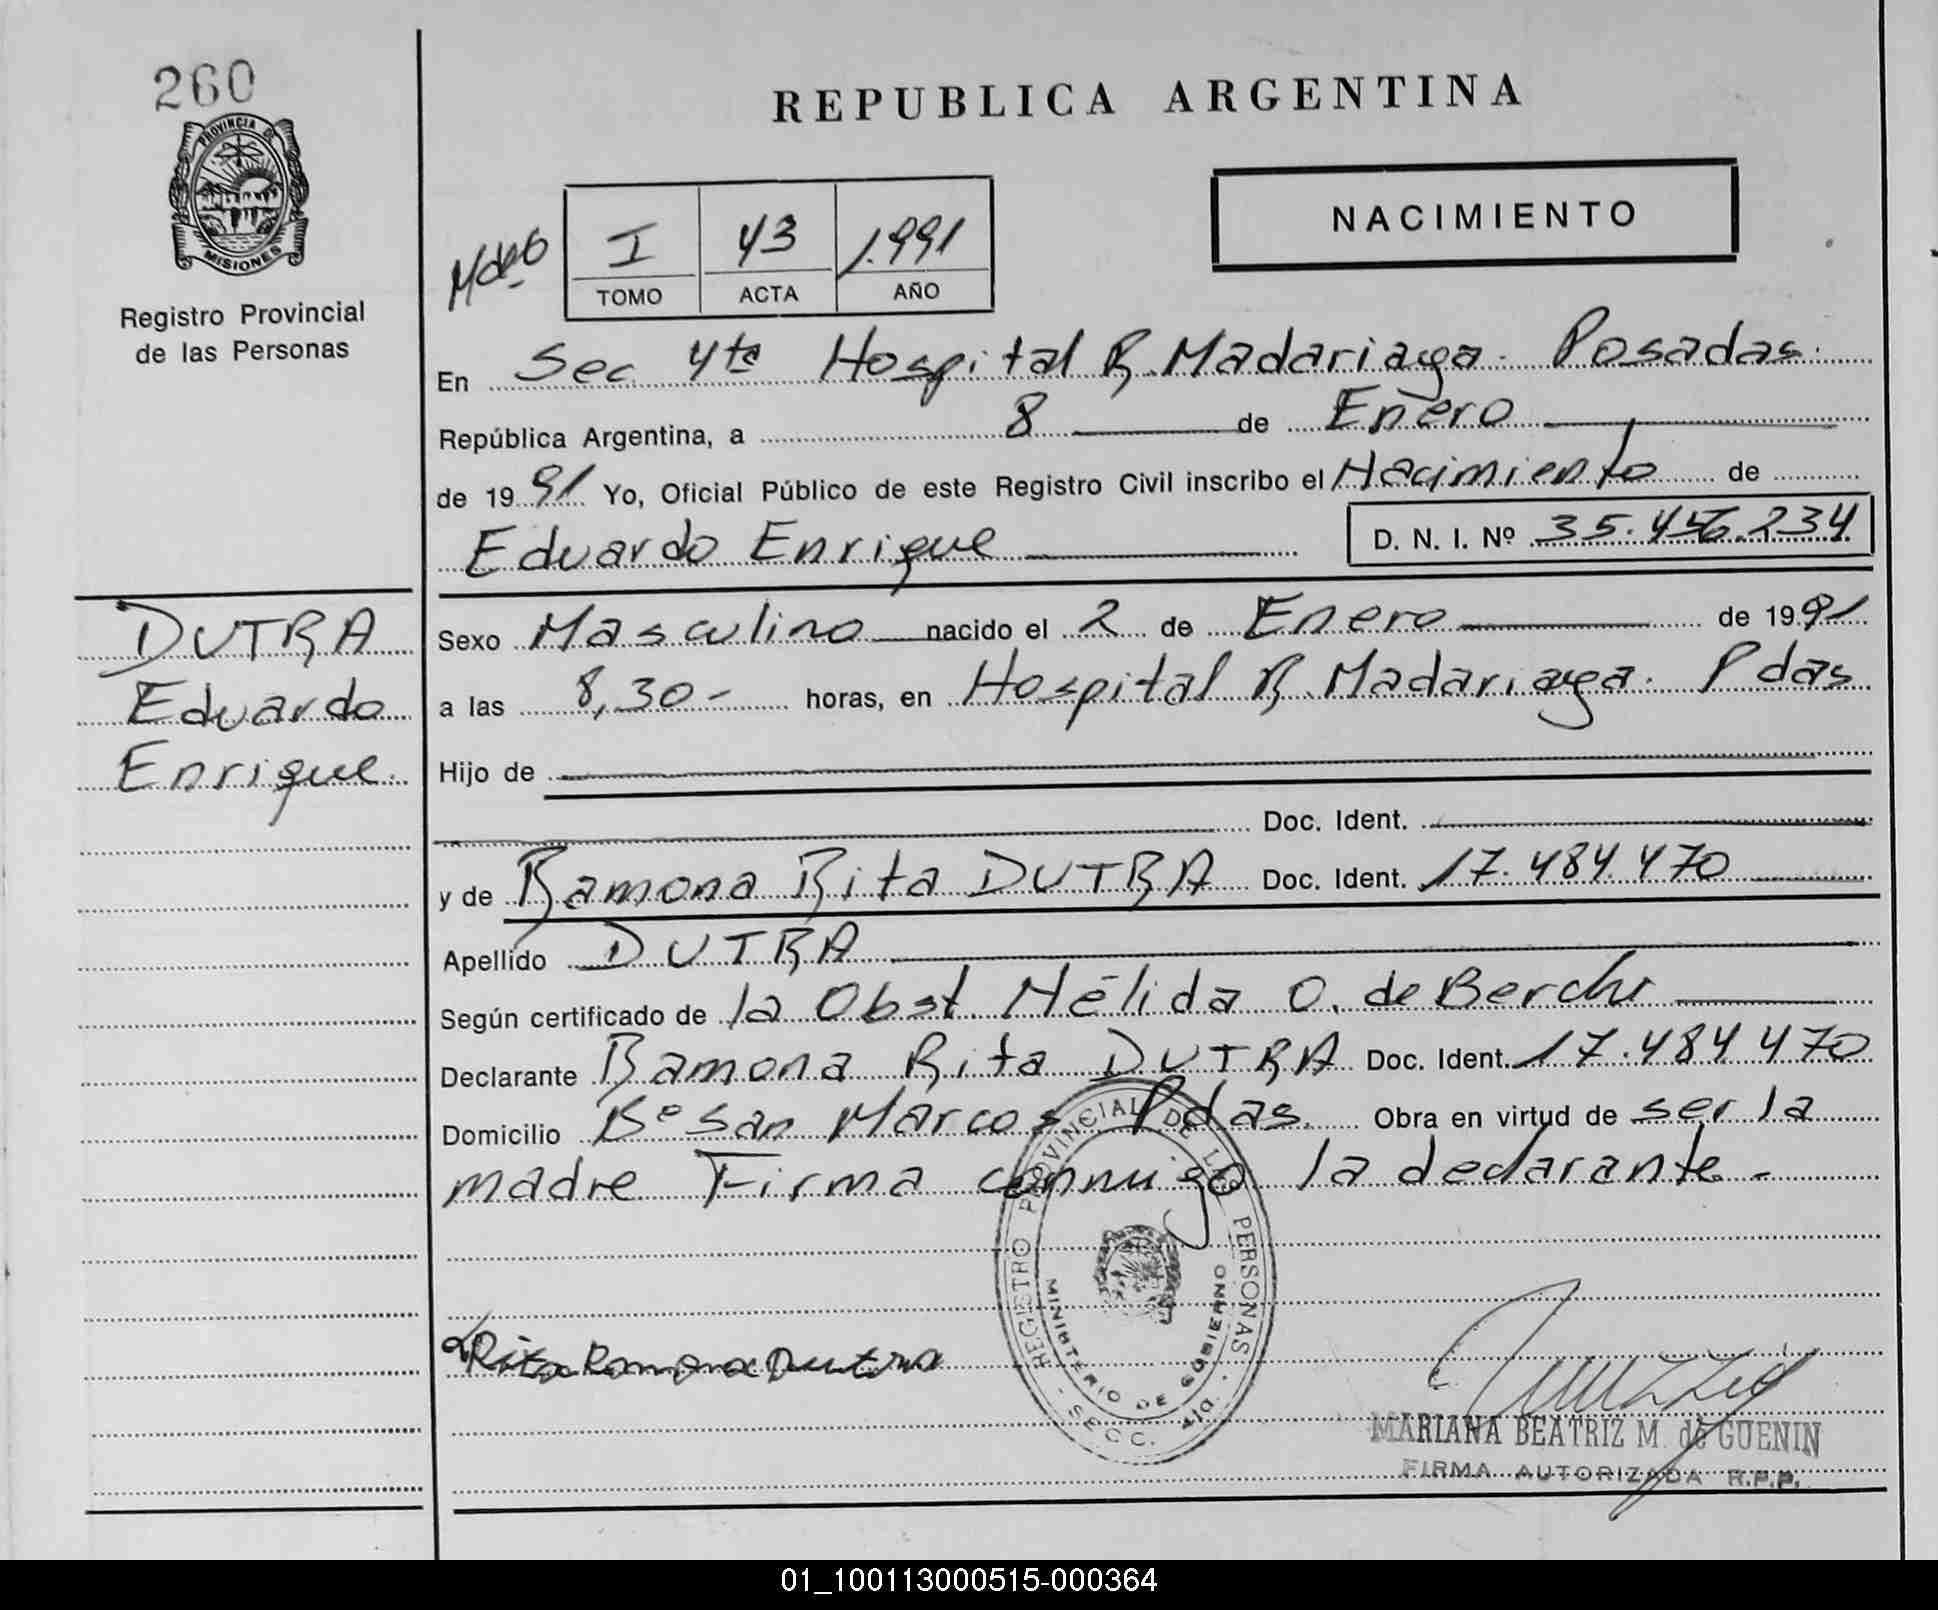 260
REPUBLICA ARGENTINA
PROVINCIA DE
MISIONES
Registro Provincial
de las Personas
I 43 1.991
TOMO ACTA AÑO
NACIMIENTO
En Sec 4ta Hospital R. Madariaga. Posadas.
República Argentina, a 8 de Enero
de 1991 Yo, Oficial Público de este Registro Civil inscribo el Nacimiento de
Eduardo Enrique D. N. I. Nº 35.456.234
DUTRA
Eduardo
Enrique.
Sexo Masculino nacido el 2 de Enero de 1991
a las 8,30- horas, en Hospital R. Madariaga. Pdas
Hijo de
Doc. Ident.
y de Ramona Rita DUTRA Doc. Ident. 17.484.470
Apellido DUTRA
Según certificado de la Obst. Nélida O. de
Declarante Ramona Rita DUTRA Doc. Ident. 17.484.470
Domicilio Bº San Marcos Pdas. Obra en virtud de ser la
madre Firma conmigo la declarante.-
REGISTRO PROVINCIAL DE LAS PERSONAS
MINISTERIO DE GOBIERNO
SECC. 4ta.
Rita Ramona Dutra
MARIANA BEATRIZ M. de GUENIN
FIRMA AUTORIZADA R.P.P.
01_100113000515-000364